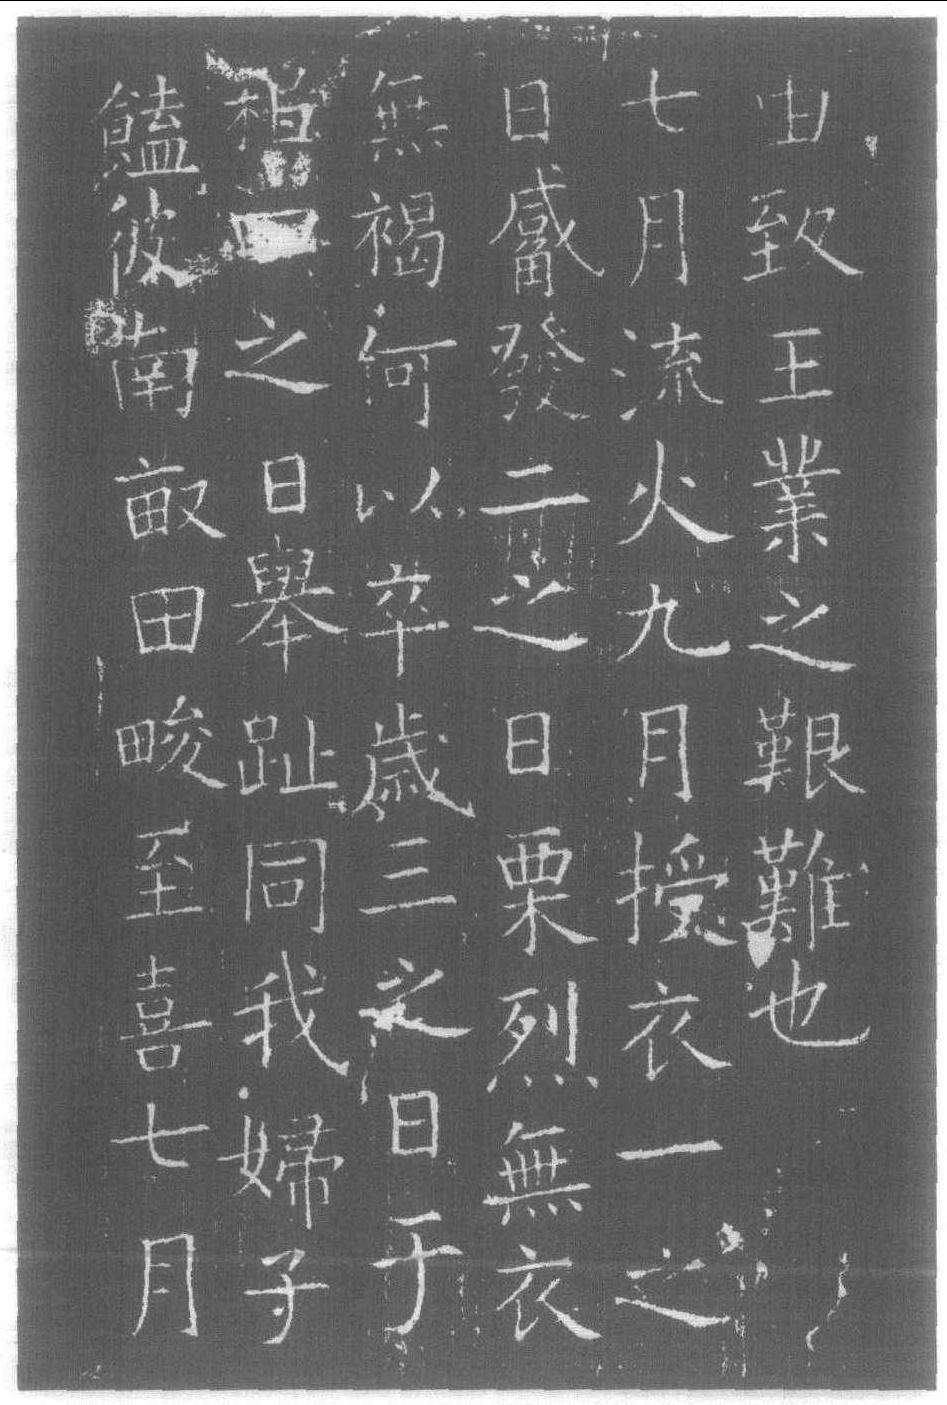 由致王業之艱難也
七月流火九月授衣一之
日觱發二之日栗烈無衣
無褐何以卒歲三之日于
耜四之日舉趾同我婦子
饁彼南畝田畯至喜七月